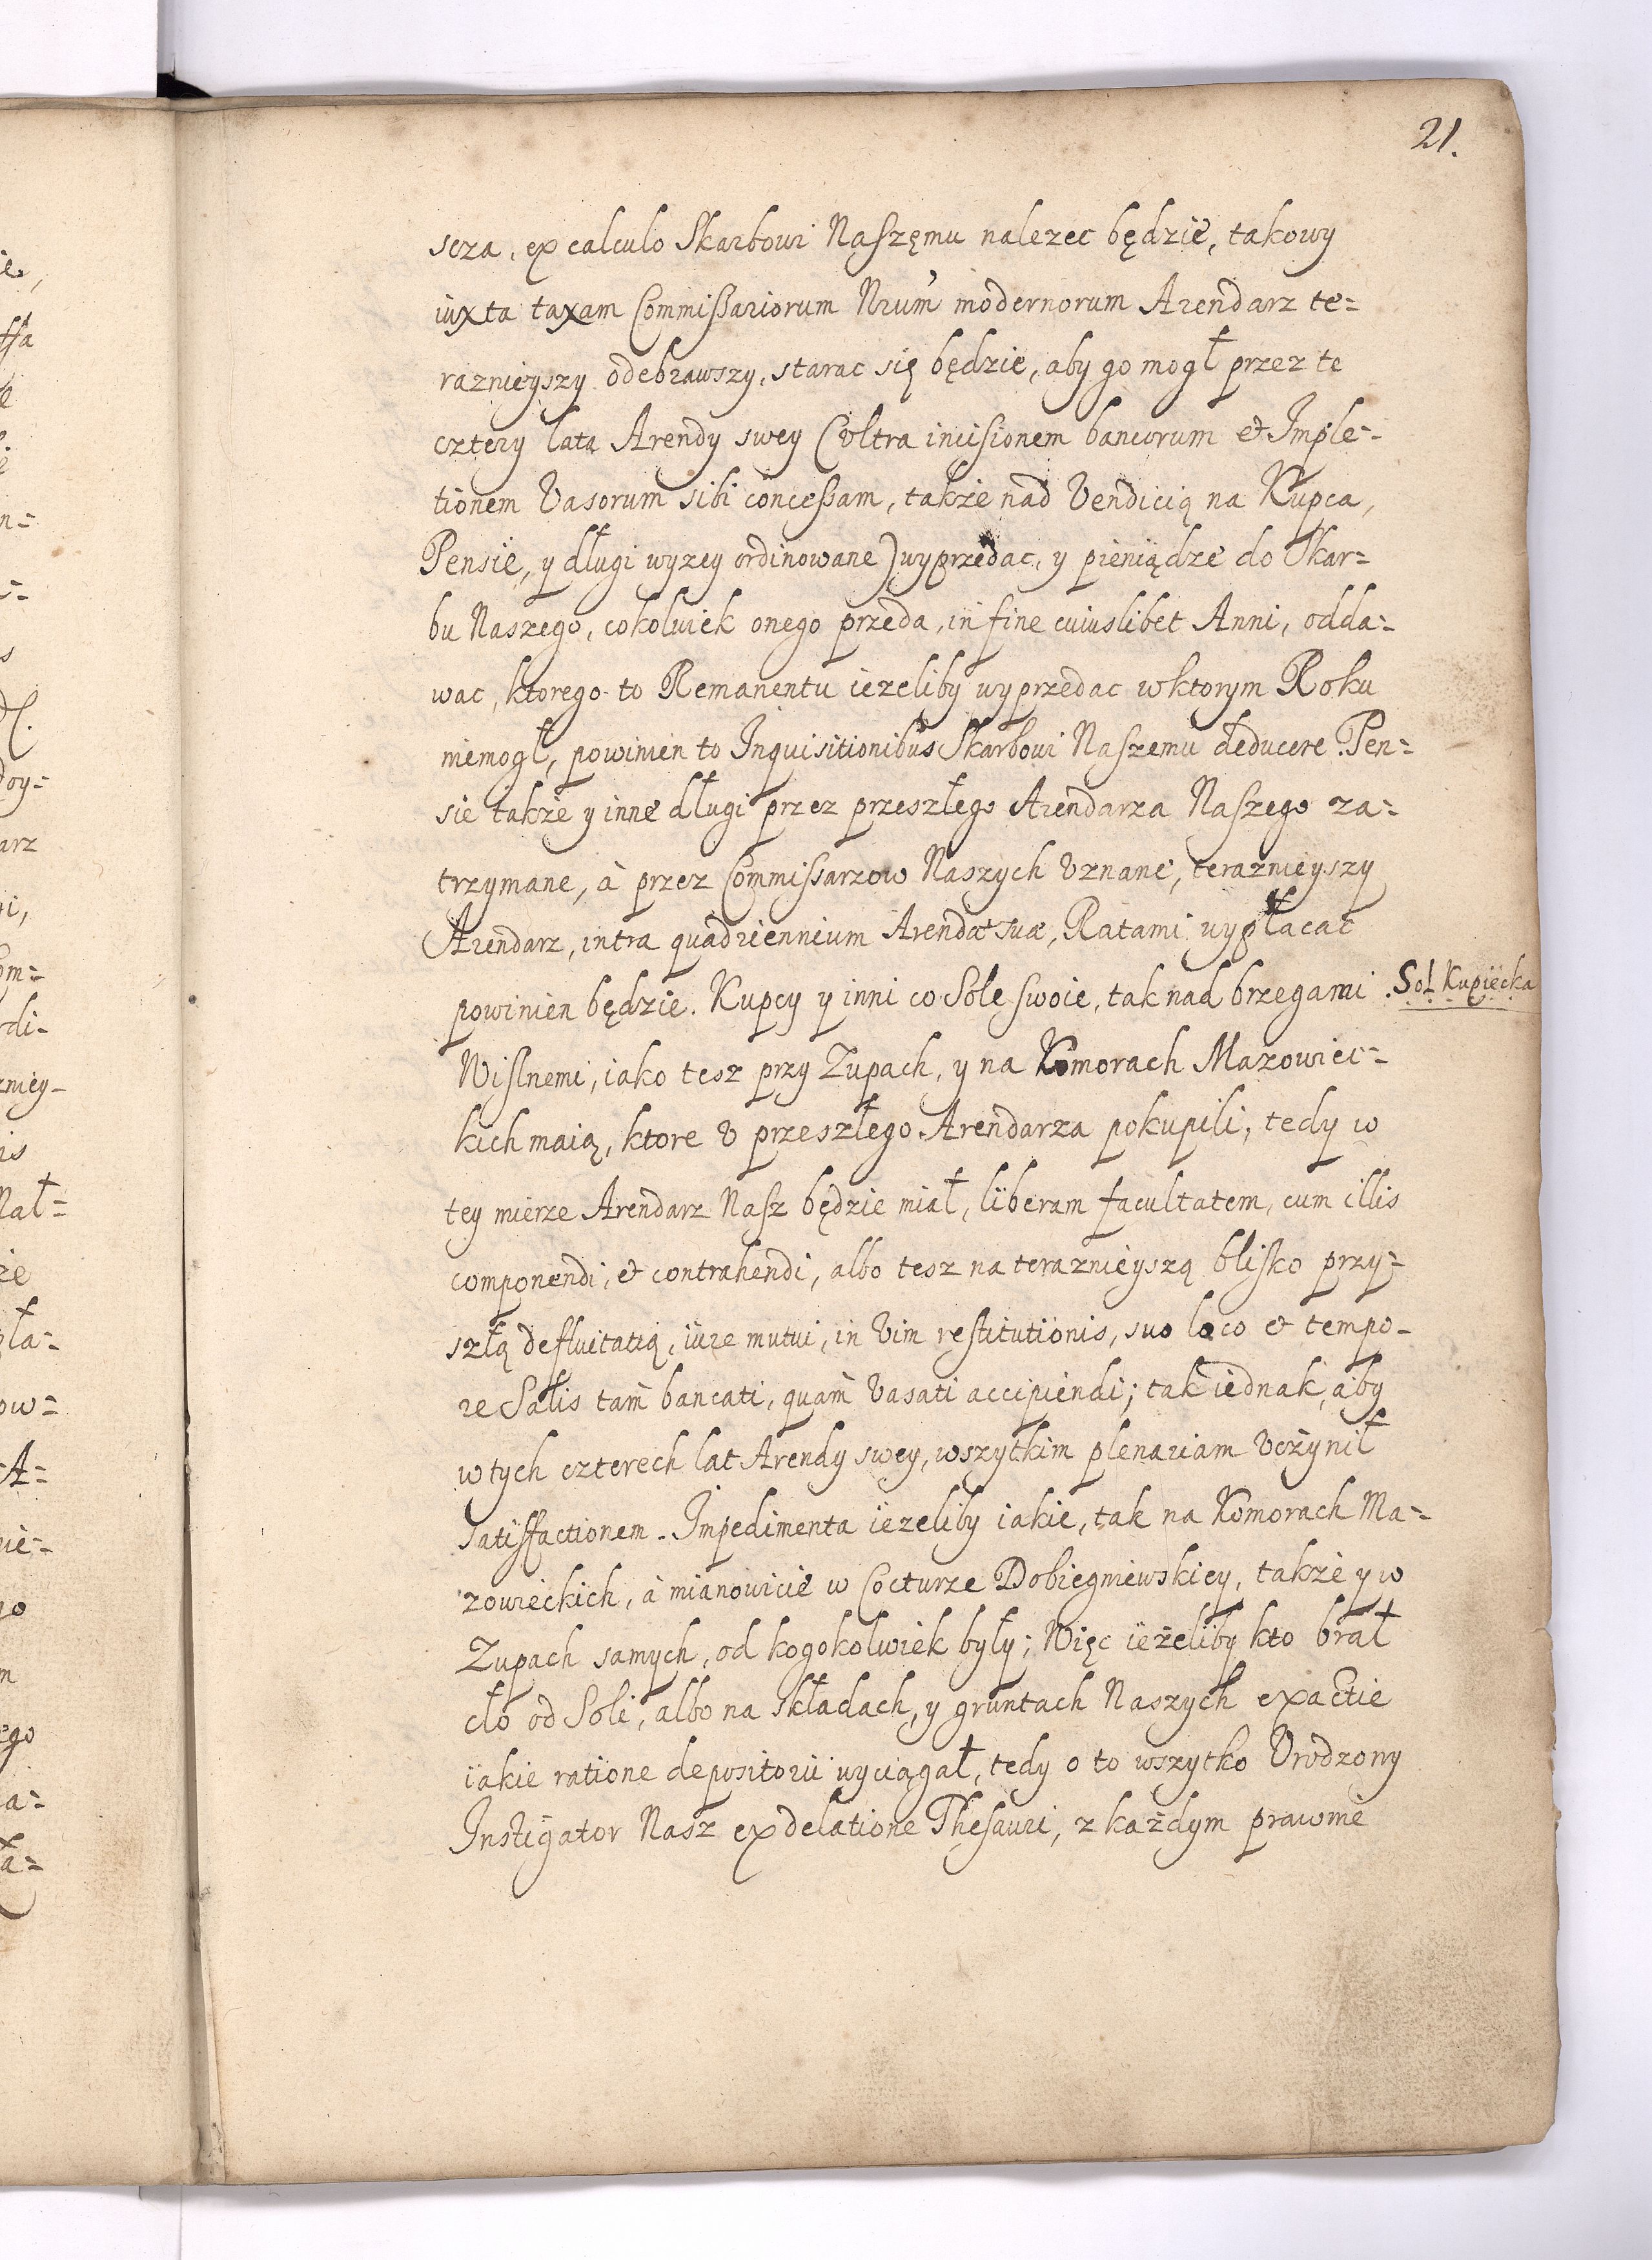 21.
scza, ex calculo Skarbowi Naszęmu nalezec będzie, takowy
iuxta taxam Commissariorum Nrum modernorum Arendarz te=
raznieyszy odebrawszy, starac się będzie, aby go mogł przez te
cztery lata Arendy swey (vltra incisionem bancorum et Imple=
tionem Vasorum sibi concessam, także nad Vendicią na Kupca,
Pensie, y długi wyzey ordinowane) wyprzedac, y pieniądze do Skar=
bu Naszego, cokolwiek onego przeda, in fine cuiuslibet Anni, odda=
wac, ktorego to Remanentu iezeliby wyprzedac w ktorym Roku
niemogł, powinien to Inquisitionibus Skarbowi Naszemu deducere. Pen=
sie także y inne długi przez przeszłego Arendarza Naszego za=
trzymane, à przez Commissarzow Naszych Vznane, teraznieyszy
Arendarz, intra quadriennium Arendæ suæ, Ratami wypłacać
powinien będzie. Kupcy y inni co Sole swoie, tak nad brzegami
Sol Kupiecka
Wislnemi, iako tesz przy Zupach, y na Komorach Mazowiec=
kich maią, ktore v przeszłego Arendarza pokupili, tedy w
tey mierze Arendarz Nasz będzie miał, liberam facultatem, cum illis
componendi, et contrahendi, albo tesz na teraznieyszą blisko przy=
szłą defluitatią, iure mutui, in Vim restitutionis, suo loco et tempo-
re Salis tam bancati, quàm Vasati accipiendi; tak iednak, aby
w tych czterech lat Arendy swey, wszytkim plenariam Vczynił
satisfactionem. Impedimenta iezeliby iakie, tak na Komorach Ma=
zowieckich, à mianowicie w Cocturze Dobiegniewskiey, także y w
Zupach samych, od kogokolwiek były; Więc ieżeliby kto brał
cło od Soli, albo na składach, y gruntach Naszych exactie
iakie ratione depositorii wyciągał, tedy o to wszytko Vrodzony
Instigator Nasz ex delatione Thesauri, z każdym prawnie